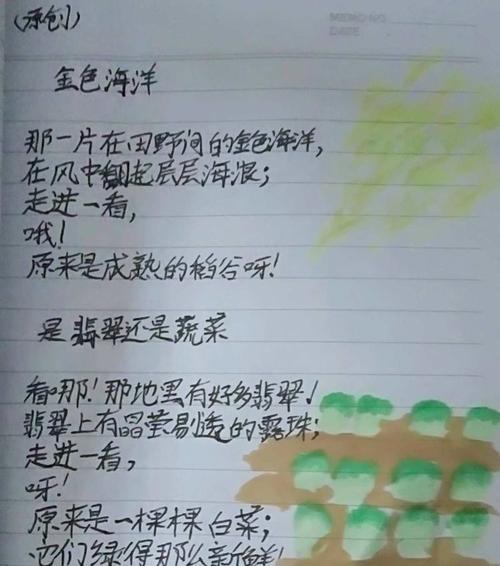 (原创)
MEMO NO.
DATE
金色海洋
那一片在田野间的金色海洋,
在风中翻起层层海浪;
走进一看,
哦!
原来是成熟的稻谷呀!
是翡翠还是蔬菜
看哪!那地里有好多翡翠!
翡翠上有晶莹易透的露珠;
走进一看,
呀!
原来是一棵棵白菜;
它们绿得那么新鲜!